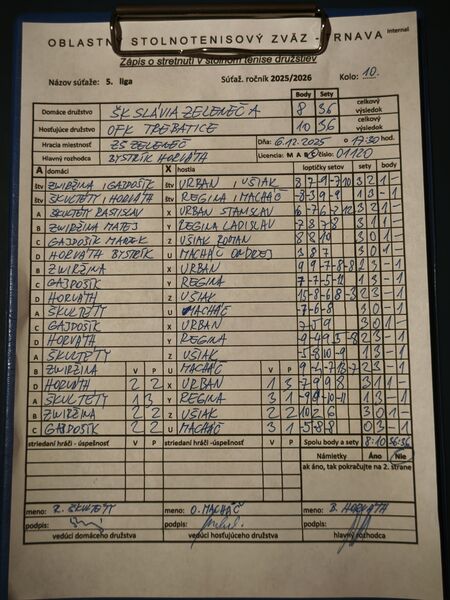 Internal
OBLASTNÝ STOLNOTENISOVÝ ZVÄZ - TRNAVA
Zápis o stretnutí v stolnom tenise družstiev
Názov súťaže: 5. liga Súťaž. ročník 2025/2026 Kolo: 10.
Body Sety
Domáce družstvo ŠK SLÁVIA ZELENEČ A 8 36 celkový výsledok
Hosťujúce družstvo OFK TREBATICE 10 36 celkový výsledok
Hracia miestnosť ZŠ ZELENEČ Dňa: 6.12.2025 o 17:30 hod.
Hlavný rozhodca BYSTRÍK HORVÁTH Licencia: M A B C číslo: 01120
A domáci X hostia loptičky setov sety body
štv ZWIRŽINA, GAJDOŠÍK štv URBAN, UŠIAK 8 7 9 -7 10 3 2 1 -
štv ŠKULTÉTY, HORVÁTH štv REGINA, MACHÁČ -8 -3 9 -9 1 3 - 1
A ŠKULTÉTY RASTISLAV X URBAN STANISLAV
B ZWIRŽINA MATEJ Y REGINA LADISLAV
C GAJDOŠÍK MAREK Z UŠIAK ROMAN 8 8 10 3 0 1 -
D HORVÁTH BYSTRÍK U MACHÁČ ONDREJ 3 8 7 3 0 1 -
B ZWIRŽINA X URBAN 9 9 -7 -8 -8 2 3 - 1
C GAJDOŠÍK Y REGINA 1 3 - 1
D HORVÁTH Z UŠIAK 2 3 - 1
A ŠKULTÉTY U MACHÁČ -7 -6 -8 0 3 - 1
C GAJDOŠÍK X URBAN 7 5 9 3 0 1 -
D HORVÁTH Y REGINA 2 3 - 1
A ŠKULTÉTY Z UŠIAK 1 3 - 1
B ZWIRŽINA V P U MACHÁČ V P 2 3 - 1
D HORVÁTH 2 2 X URBAN 1 3 -7 9 9 8 3 1 1 -
A ŠKULTÉTY 1 3 Y REGINA 3 1 1 3 - 1
B ZWIRŽINA 2 2 Z UŠIAK 2 2 10 2 6 3 0 1 -
C GAJDOŠÍK 2 2 U MACHÁČ 3 1 -5 -8 -8 0 3 - 1
striedaní hráči - úspešnosť V P striedaní hráči - úspešnosť V P Spolu body a sety 8:10 36:36
Námietky Áno Nie
ak áno, tak pokračujte na 2. strane
meno: R. ŠKULTÉTY meno: O. MACHÁČ meno: B. HORVÁTH
podpis: podpis: podpis:
vedúci domáceho družstva vedúci hosťujúceho družstva hlavný rozhodca